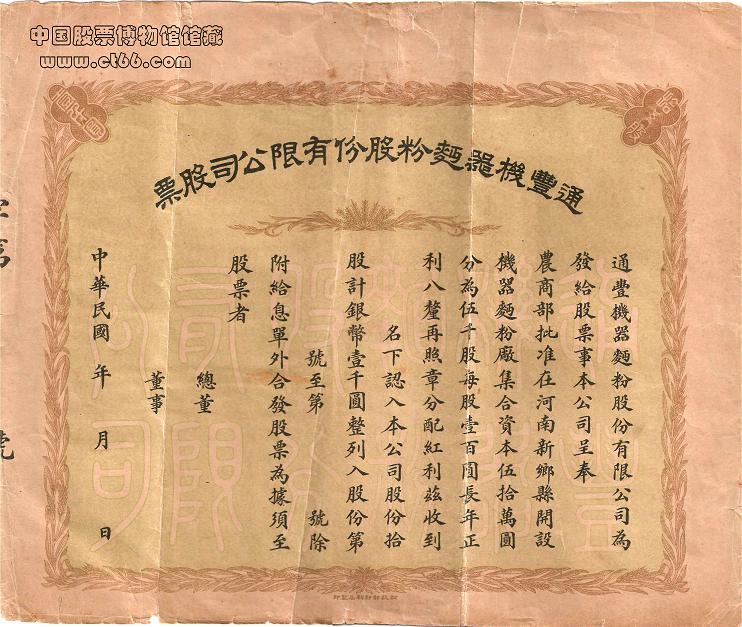 中国股票博物馆馆藏
www.ct66.com
通豐機器麵粉股份有限公司股票
通豐機器麵粉股份有限公司為
發給股票事本公司呈奉
農商部批准在河南新鄉縣開設
機器麵粉廠集合資本伍拾萬圓
分為伍千股每股壹百圓長年正
利八釐再照章分配紅利茲收到
名下認入本公司股份拾
股計銀幣壹千圓整列入股份第
號至第 號除
附給息單外合發股票為據須至
股票者
總董
董事
中華民國 年 月 日